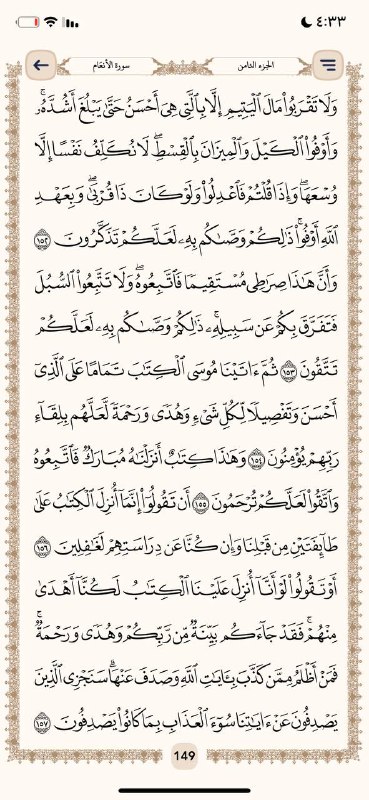 ٤:٣٣
الجزء الثامن سورة الأنعام
وَلَا تَقْرَبُوا۟ مَالَ ٱلْيَتِيمِ إِلَّا بِٱلَّتِى هِىَ أَحْسَنُ حَتَّىٰ يَبْلُغَ أَشُدَّهُۥۚ
وَأَوْفُوا۟ ٱلْكَيْلَ وَٱلْمِيزَانَ بِٱلْقِسْطِۖ لَا نُكَلِّفُ نَفْسًا إِلَّا
وُسْعَهَاۖ وَإِذَا قُلْتُمْ فَٱعْدِلُوا۟ وَلَوْ كَانَ ذَا قُرْبَىٰۖ وَبِعَهْدِ
ٱللَّهِ أَوْفُوا۟ۚ ذَٰلِكُمْ وَصَّىٰكُم بِهِۦ لَعَلَّكُمْ تَذَكَّرُونَ ١٥٢
وَأَنَّ هَٰذَا صِرَٰطِى مُسْتَقِيمًا فَٱتَّبِعُوهُۖ وَلَا تَتَّبِعُوا۟ ٱلسُّبُلَ
فَتَفَرَّقَ بِكُمْ عَن سَبِيلِهِۦۚ ذَٰلِكُمْ وَصَّىٰكُم بِهِۦ لَعَلَّكُمْ
تَتَّقُونَ ١٥٣ ثُمَّ ءَاتَيْنَا مُوسَى ٱلْكِتَٰبَ تَمَامًا عَلَى ٱلَّذِىٓ
أَحْسَنَ وَتَفْصِيلًا لِّكُلِّ شَىْءٍ وَهُدًى وَرَحْمَةً لَّعَلَّهُم بِلِقَآءِ
رَبِّهِمْ يُؤْمِنُونَ ١٥٤ وَهَٰذَا كِتَٰبٌ أَنزَلْنَٰهُ مُبَارَكٌ فَٱتَّبِعُوهُ
وَٱتَّقُوا۟ لَعَلَّكُمْ تُرْحَمُونَ ١٥٥ أَن تَقُولُوٓا۟ إِنَّمَآ أُنزِلَ ٱلْكِتَٰبُ عَلَىٰ
طَآئِفَتَيْنِ مِن قَبْلِنَا وَإِن كُنَّا عَن دِرَاسَتِهِمْ لَغَٰفِلِينَ ١٥٦
أَوْ تَقُولُوا۟ لَوْ أَنَّآ أُنزِلَ عَلَيْنَا ٱلْكِتَٰبُ لَكُنَّآ أَهْدَىٰ
مِنْهُمْۚ فَقَدْ جَآءَكُم بَيِّنَةٌ مِّن رَّبِّكُمْ وَهُدًى وَرَحْمَةٌۚ
فَمَنْ أَظْلَمُ مِمَّن كَذَّبَ بِـَٔايَٰتِ ٱللَّهِ وَصَدَفَ عَنْهَاۗ سَنَجْزِى ٱلَّذِينَ
يَصْدِفُونَ عَنْ ءَايَٰتِنَا سُوٓءَ ٱلْعَذَابِ بِمَا كَانُوا۟ يَصْدِفُونَ ١٥٧
149